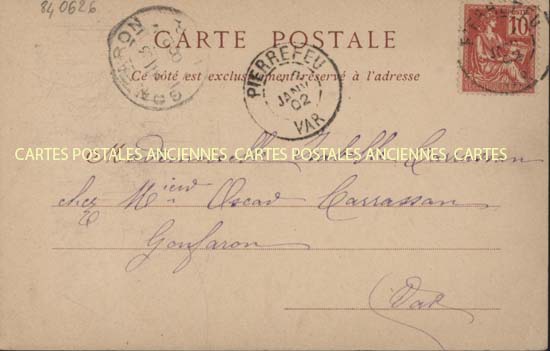 840626
CARTE POSTALE
Ce côté est exclusivement réservé à l'adresse
PIERREFEU
JANV
02
VAR
10
GONFARON
CARTES POSTALES ANCIENNES CARTES POSTALES ANCIENNES CARTES
chez Mr Oscar Carrassan
Gonfaron
Var